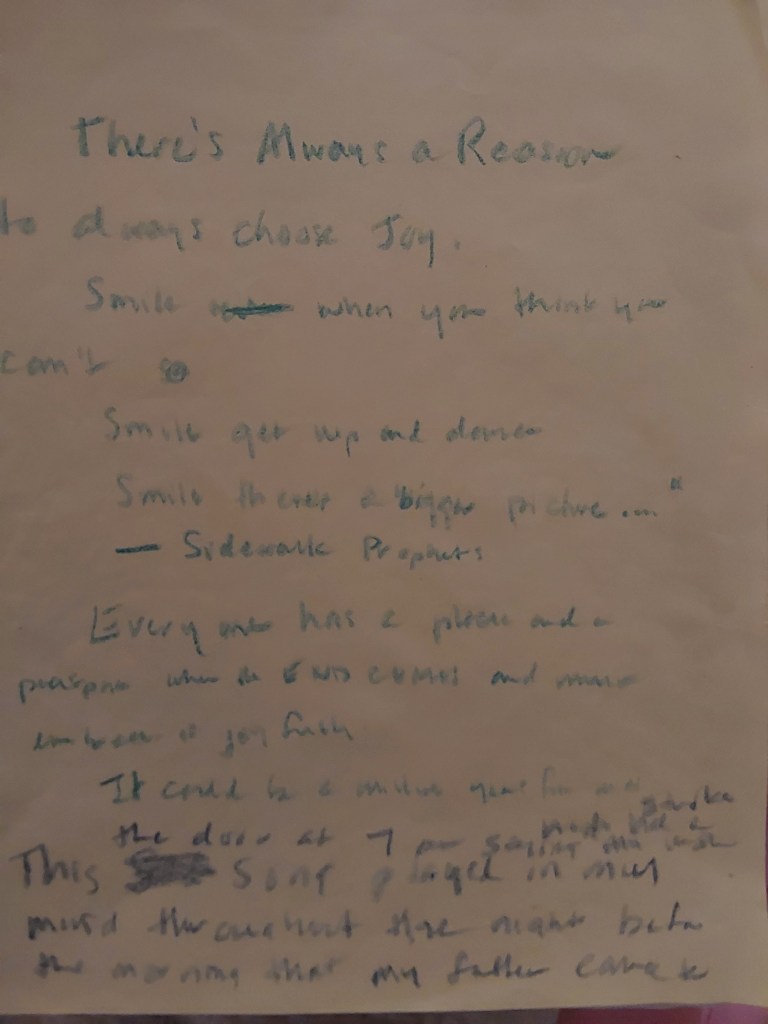 There's Always a Reason
to always choose Joy.
Smile when you think you
can't
Smile get up and dance
Smile there's a bigger picture...."
— Sidewalk Prophets
Every one has a place and a
purpose when the END COMES and must
embrace it joyfully
It could be a million years
the door at 7
This Song played in my
mind throughout the night before
the morning that my father came to